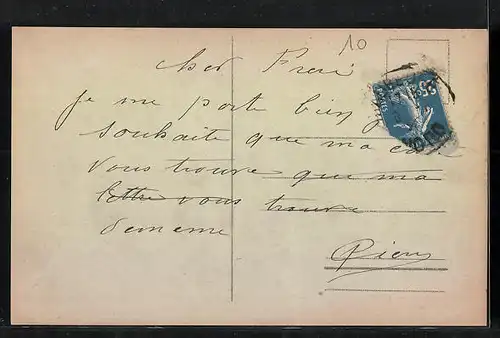 10
Cher Frere
je me porte bien je
souhaite que ma
vous trouve que ma
lettre vous trouve
de meme
25c